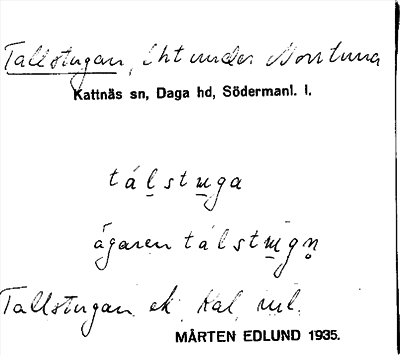 Tallstugan, lht under Norrtuna
Kattnäs sn, Daga hd, Södermanl. l.
tálstuga
ägaren tálstugn̥
Tallstugan ek. kal. ml.
MÅRTEN EDLUND 1935.